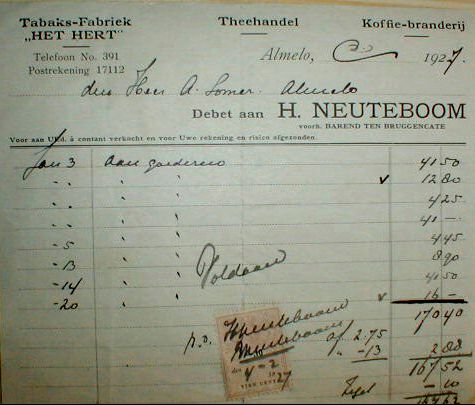 Tabaks-Fabriek Theehandel Koffie-branderij
„HET HERT”
Telefoon No. 391
Postrekening 17112
Almelo, 1927.
den Heer A. Somer. Almelo
Debet aan H. NEUTEBOOM
voorh. BAREND TEN BRUGGENCATE
Voor aan UEd. à contant verkocht en voor Uwe rekening en risico afgezonden.
Jan 3 Aan goederen 41 50
" " v 12 80
" " 4 25
" " 41 —
- 5 " 4 45
- 13 " 8 90
- 14 " 41 50
- 20 " v 16 —
Voldaan
170 40
p.o. HNeuteboom
af 2.75
" - 13 2 88
167 52
Zegel - 10
167 62
den 4-2 1927
VIER CENT